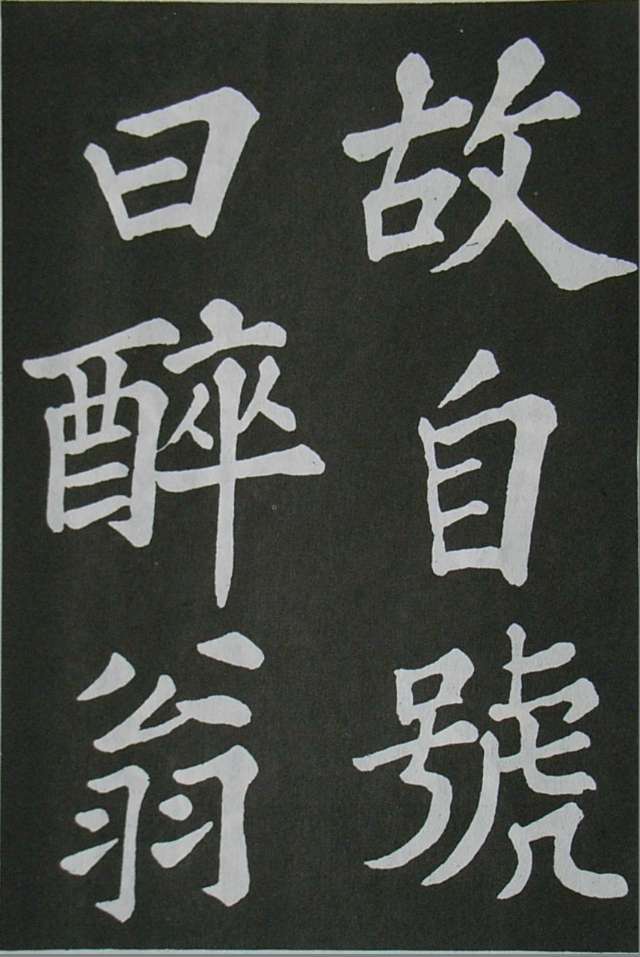 故自號
曰醉翁